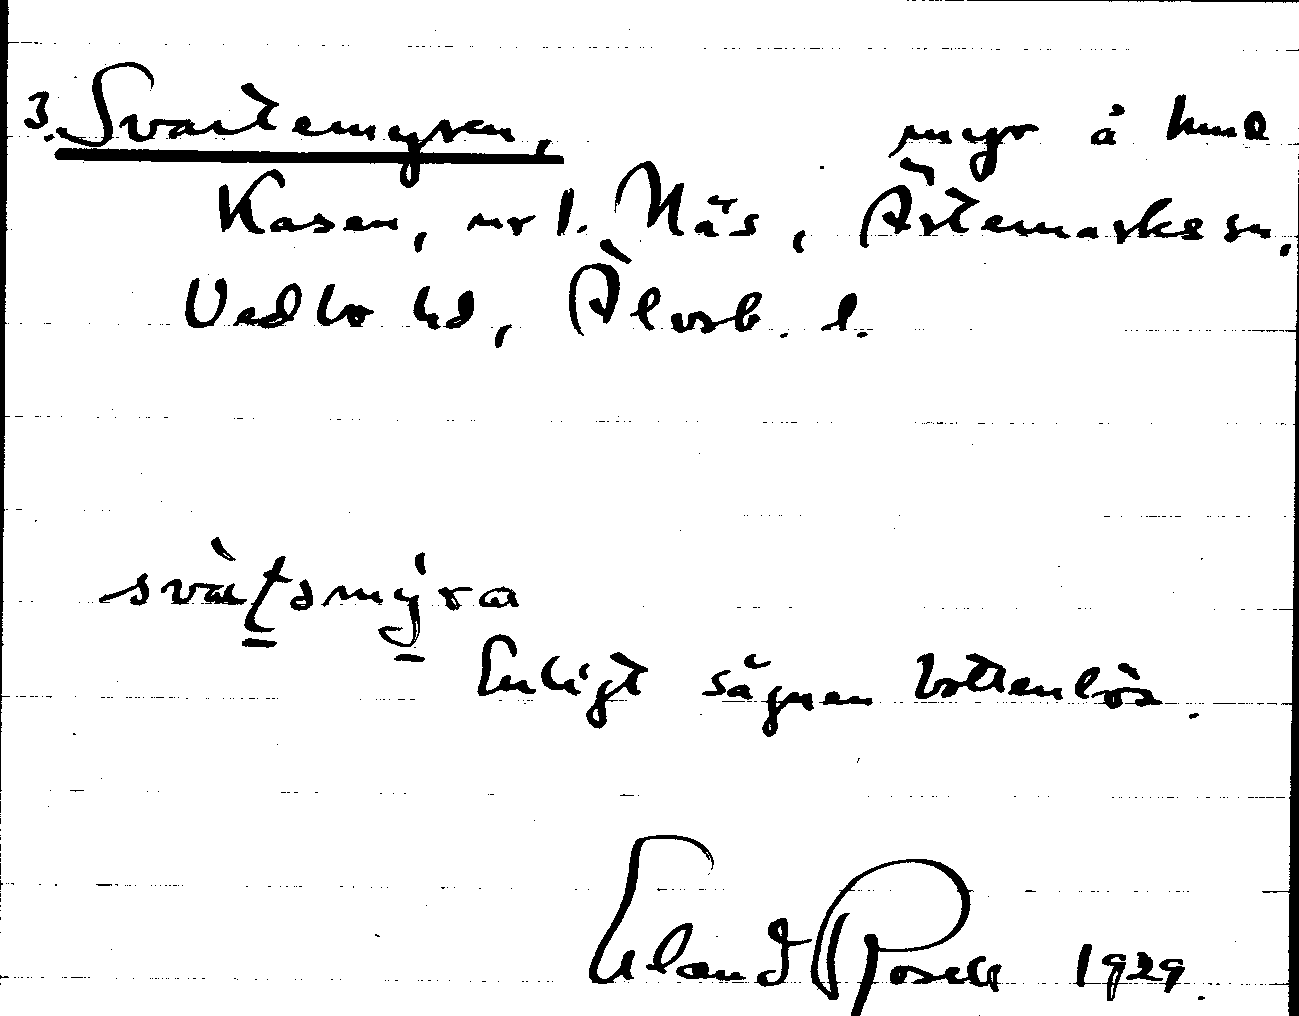 3. Svartemyren, myr å hmd
Kasen, nr 1. Näs, Ärtemarks sn,
Vedbo hd, Älvsb. l.
svàʈəmýra
Enligt sägnen bottenlös.
Erland Rosell 1929.